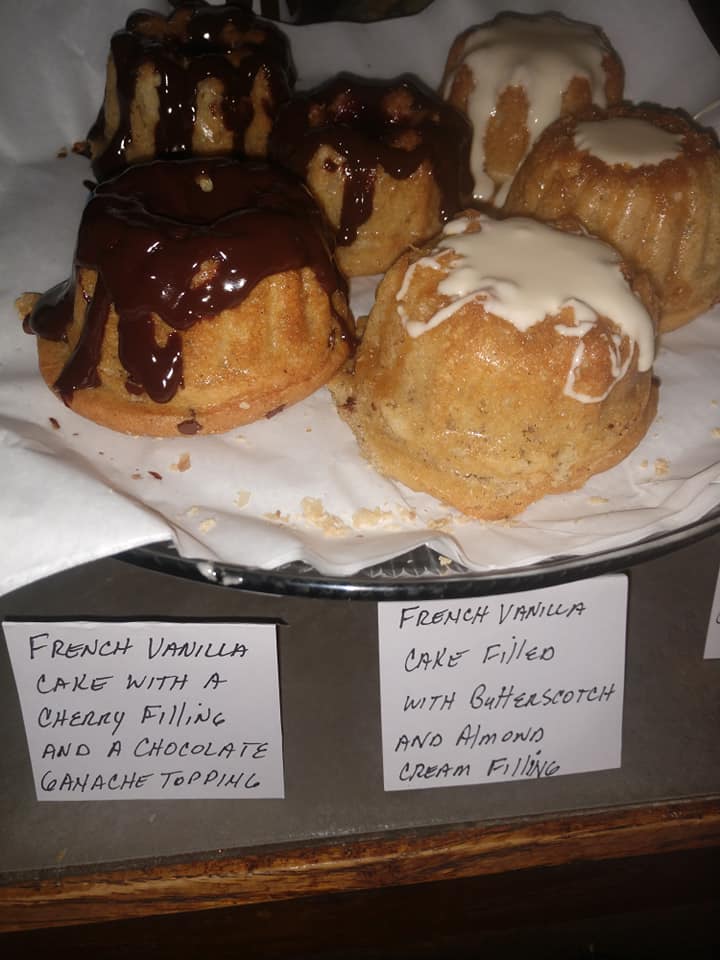 FRENCH VANILLA
CAKE WITH A
CHERRY FILLING
AND A CHOCOLATE
GANACHE TOPPING
FRENCH VANILLA
CAKE FILLED
WITH BUTTERSCOTCH
AND ALMOND
CREAM FILLING